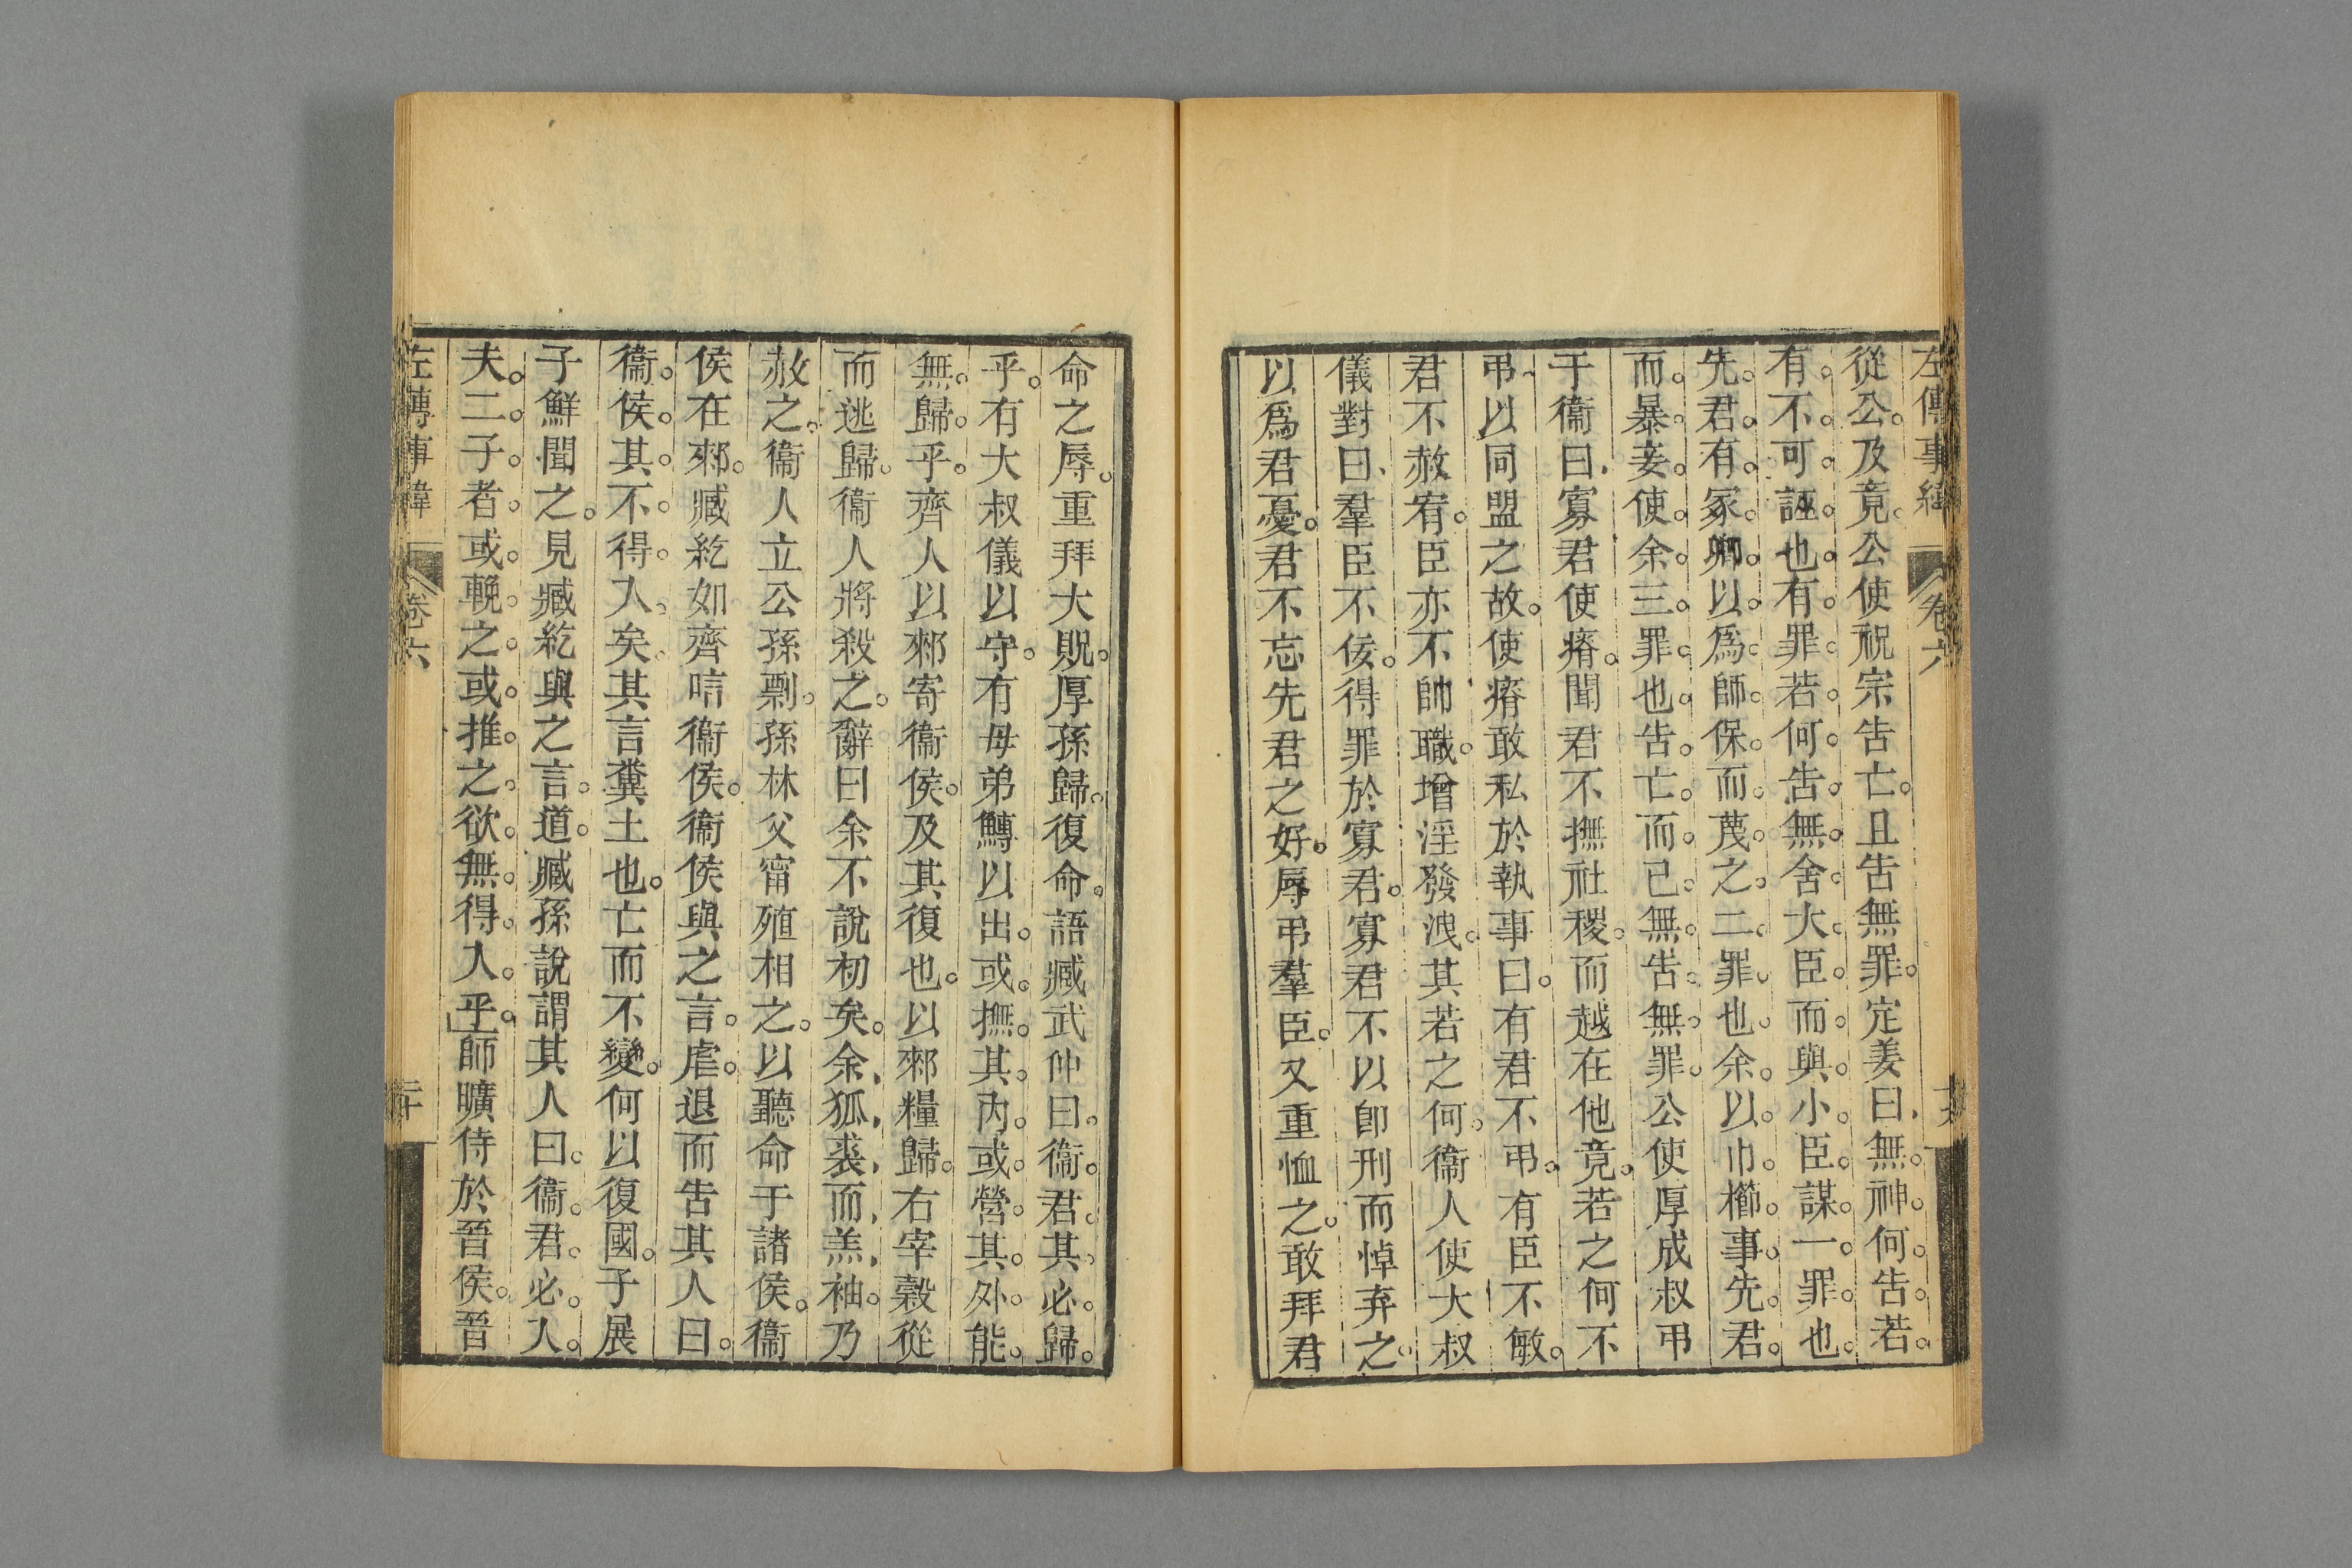 左傳事緯 卷六 十九
從公。及竟。公使祝宗告亡。且告無罪。定姜曰、無。神。何。告。若。
有。不。可。誣。也。有。罪。若。何。告。無。舍。大。臣。而。與。小。臣。謀。一。罪。也。
先。君。有。冢。卿。以。爲。師。保。而。蔑。之。二。罪。也。余。以。巾。櫛。事。先。君。
而。暴。妾。使。余。三。罪。也。告。亡。而。已。無。告。無。罪。公使厚成叔弔
于衞曰、寡君使瘠。聞君不撫社稷。而越在他竟。若之何不
弔、以同盟之故。使瘠敢私於執事曰。有君不弔。有臣不敏。
君不赦宥。臣亦不帥職。增淫發洩。其若之何。衞人使大叔
儀對曰、羣臣不佞。得罪於寡君。寡君不以卽刑而悼弃之。
以爲君憂。君不忘先君之好。辱弔羣臣。又重恤之。敢拜君
命之辱。重拜大貺。厚孫歸。復命。語臧武仲曰。衞。君。其。必。歸。
乎。有大叔儀以守。有母弟鱄以出。或。撫。其。內。或。營。其。外。能。
無。歸。乎。齊人以郲寄衞侯。及其復也。以郲糧歸。右宰穀從
而逃歸。衞人將殺之。辭曰余不說初矣。余、狐、裘、而、羔、袖。乃
赦之。衞人立公孫剽。孫林父甯殖相之。以聽命于諸侯。衞
侯在郲。臧紇如齊唁衞侯。衞侯與之言。虐。退而告其人曰。
衞。侯。其。不。得。入。矣。其言糞土也。亡而不變。何以復國。子展
子鮮聞之。見臧紇與之言。道。臧孫說謂其人曰。衞。君。必。入。
夫。二。子。者。或。輓。之。或。推。之。欲。無。得。入。乎。師曠侍於晉侯。晉
左傳事緯 卷六 二十